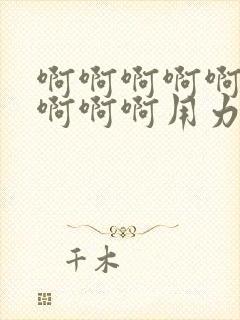 啊啊啊啊啊
啊啊啊用力
千木